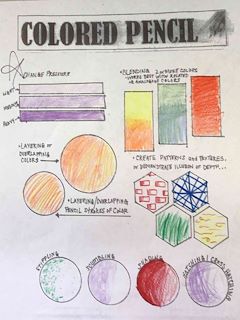 COLORED PENCIL
CHANGE PRESSURE
LIGHT
MEDIUM
HEAVY
•BLENDING 2 OR MORE COLORS
•WORKS BEST WITH RELATED
OR ANALOGOUS COLORS
•LAYERING OR
OVERLAPPING
COLORS
•CREATE PATTERNS AND TEXTURES,
OR DEMONSTRATE ILLUSION OF DEPTH...
•LAYERING/OVERLAPPING
PENCIL STROKES OF COLOR
STIPPLING
SCUMBLING
SHADING
HATCHING/CROSS HATCHING